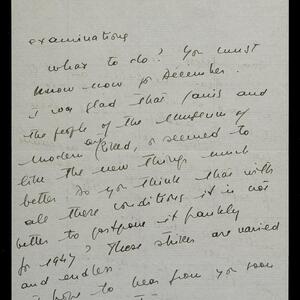 examinations
What to do? You must
know now for December.
I was glad that Janis and
the people of the Museum of
Modern Art liked, or seemed to
like the new things much
better. Do you think that with
all these conditions it is not
better to postpone it frankly
for 1947? These strikes are varied
and endless
I hope to hear from you soon